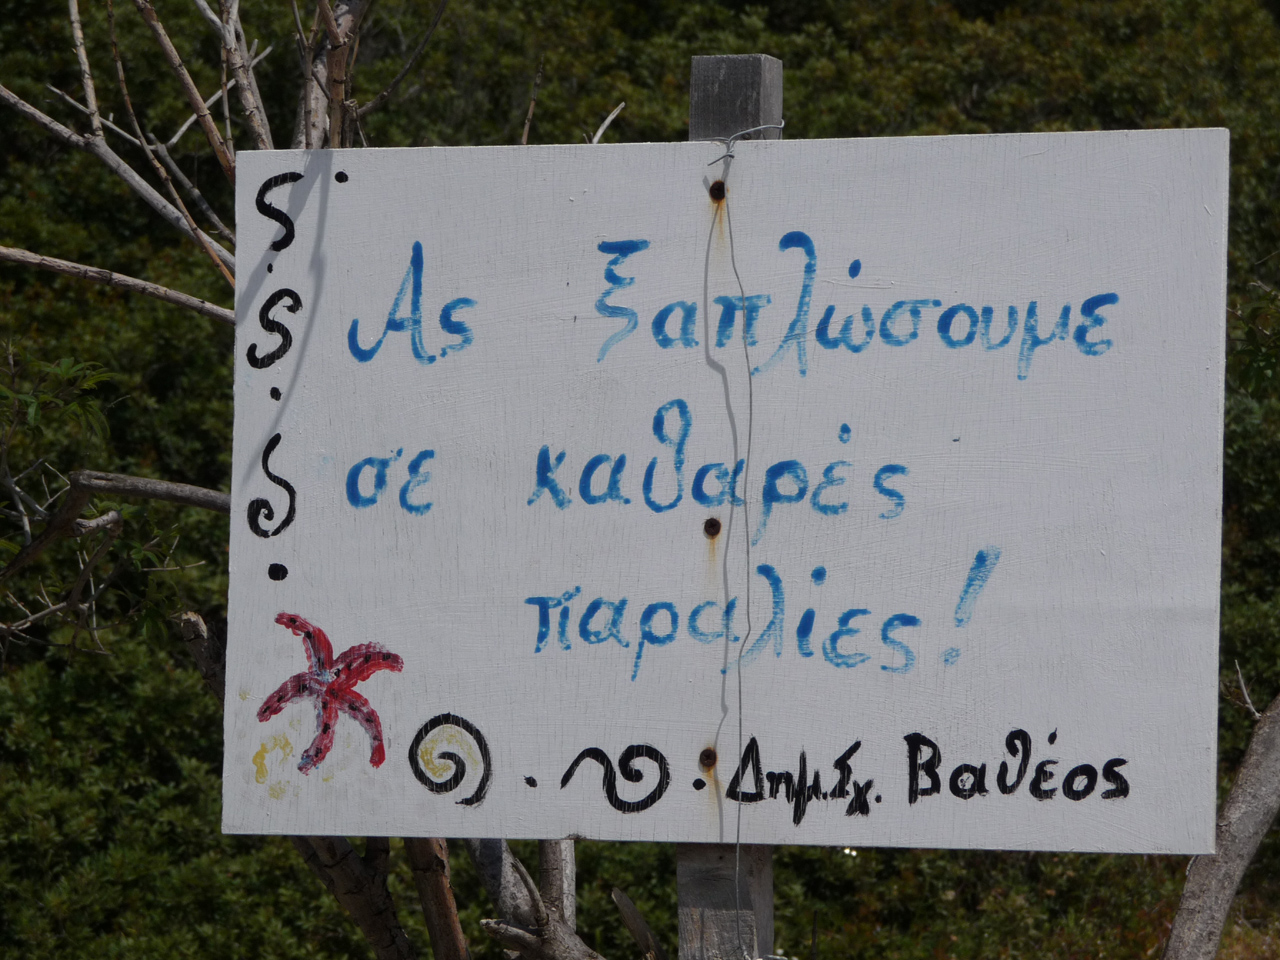 Ας ξαπλώσουμε
σε καθαρές
παραλίες!
Δημ. Σχ. Βαθέος